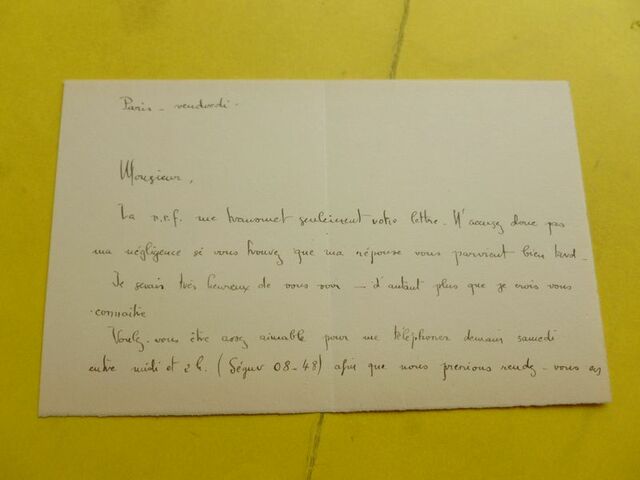 Paris - vendredi -
Monsieur,
La n.r.f. me transmet seulement votre lettre - N'accusez donc pas
ma négligence si vous trouvez que ma réponse vous parvient bien tard -
Je serais très heureux de vous voir - d'autant plus que je crois vous
connaître
Voulez-vous être assez aimable pour me téléphoner demain samedi
entre midi et 2 h. (Ségur 08-48) afin que nous prenions rendez-vous